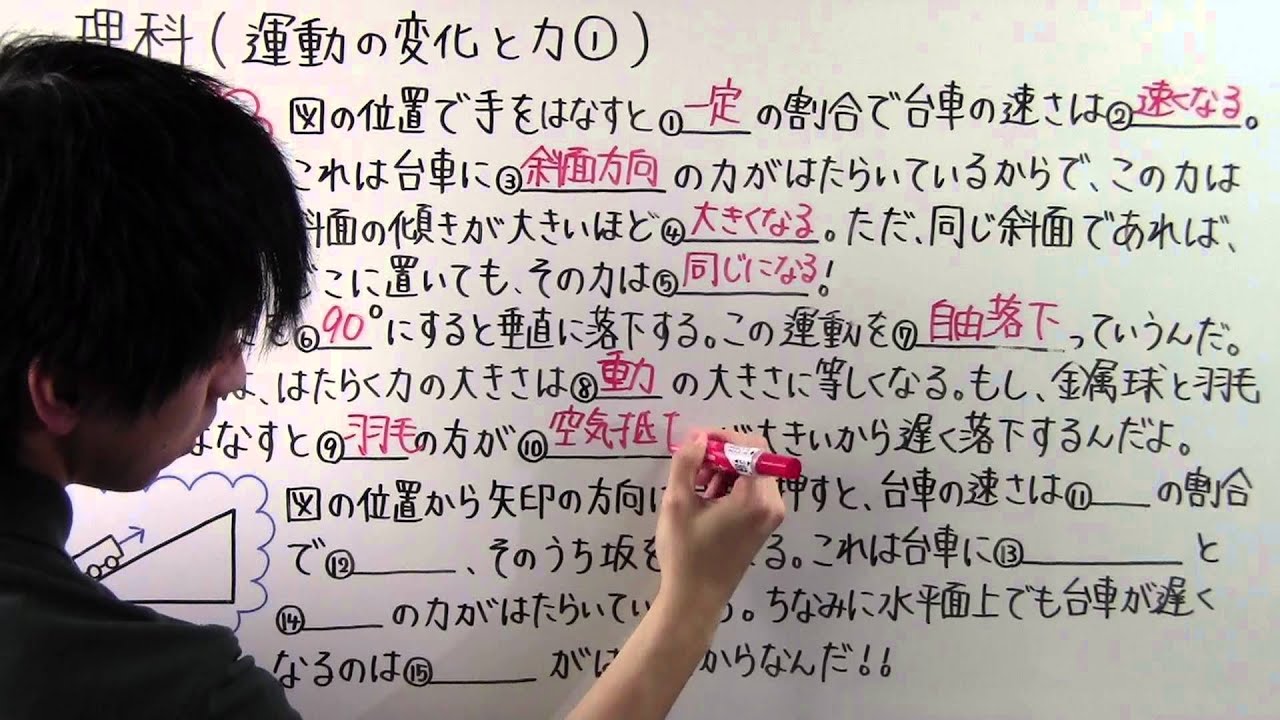 理科(運動の変化と力①)
図の位置で手をはなすと①一定の割合で台車の速さは②速くなる。
これは台車に③斜面方向の力がはたらいているからで、この力は
斜面の傾きが大きいほど④大きくなる。ただ、同じ斜面であれば、
こに置いても、その力は⑤同じになる!
⑥90°にすると垂直に落下する。この運動を⑦自由落下っていうんだ。
は、はたらく力の大きさは⑧重力の大きさに等しくなる。もし、金属球と羽毛
はなすと⑨羽毛の方が⑩空気抵 が大きいから遅く落下するんだよ。
図の位置から矢印の方向に 押すと、台車の速さは⑪___の割合
で⑫___、そのうち坂を る。これは台車に⑬___と
⑭___の力がはたらいてい 。ちなみに水平面上でも台車が遅く
なるのは⑮___がは からなんだ!!